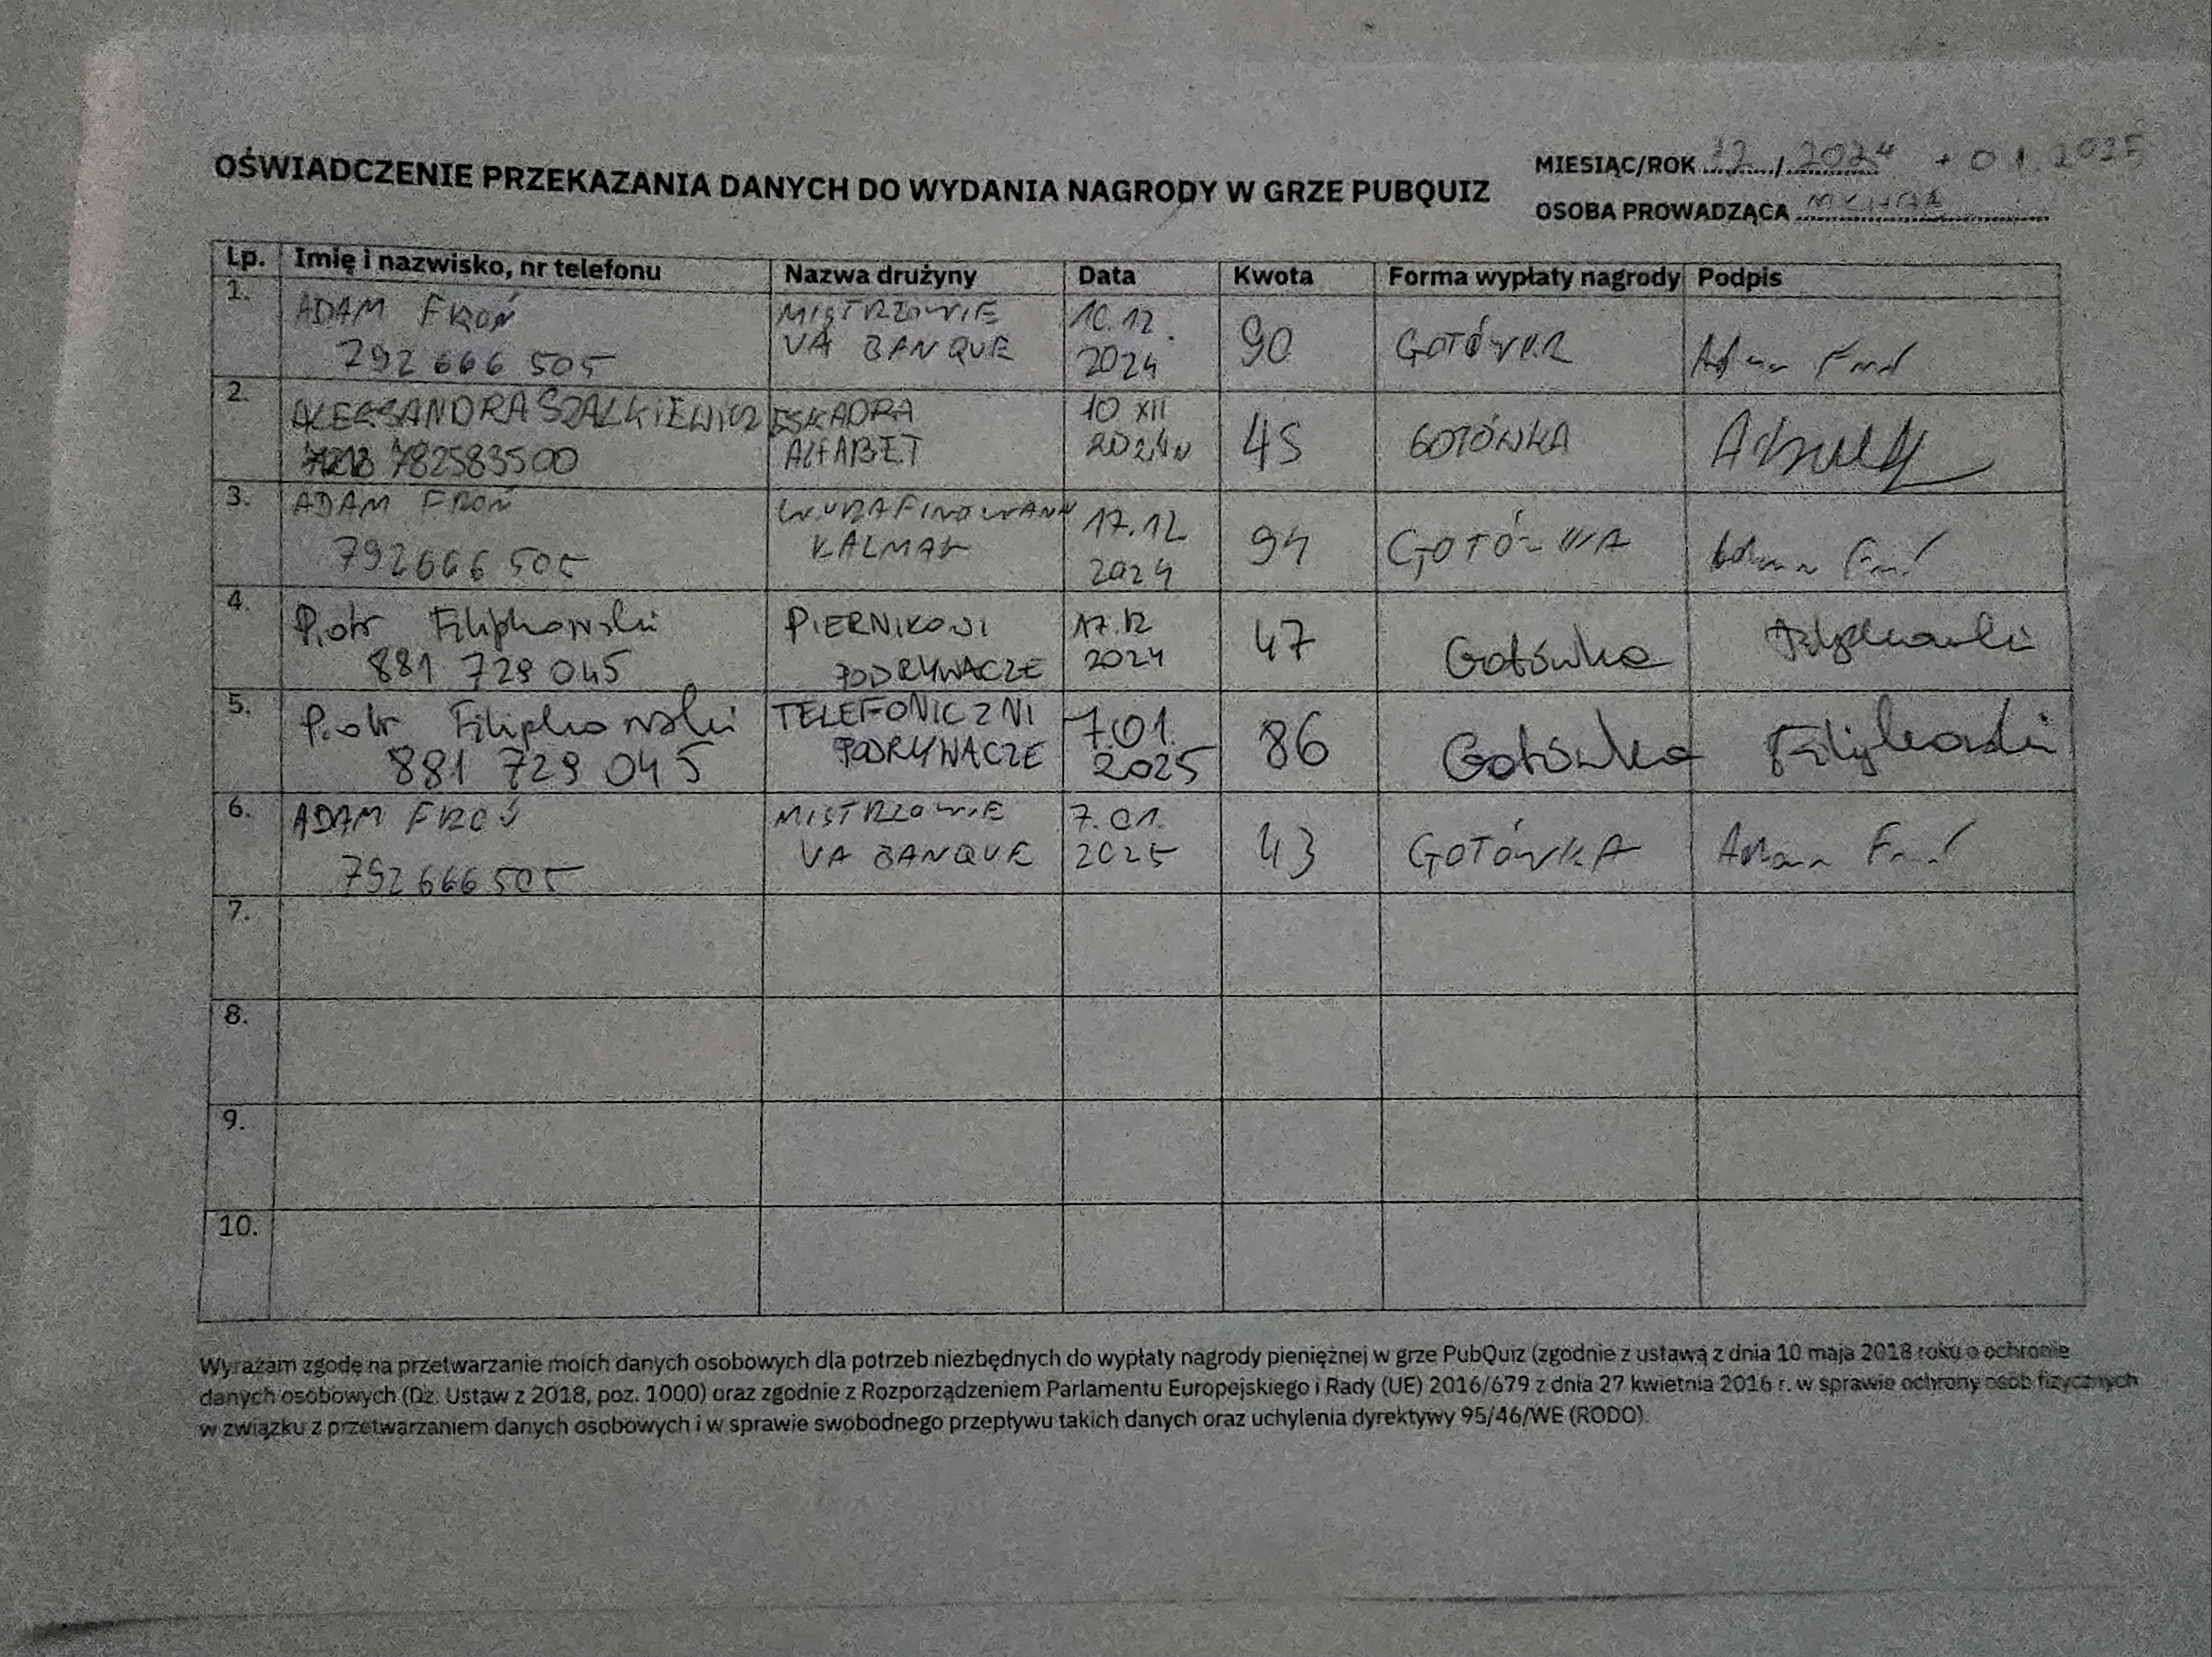 OŚWIADCZENIE PRZEKAZANIA DANYCH DO WYDANIA NAGRODY W GRZE PUBQUIZ
MIESIĄC/ROK 12 / 2024 + 01 2025
OSOBA PROWADZĄCA
Lp. Imię i nazwisko, nr telefonu Nazwa drużyny Data Kwota Forma wypłaty nagrody Podpis
1. ADAM FROŃ MISTRZOWIE 10.12.
792 666 505 VA BANQUE 2024 90 GOTÓWKA
2. ALEKSANDRA SZALKIEWICZ ESKADRA 10 XII
782583500 ALFABET 2024 45 GOTÓWKA
3. ADAM FROŃ WYRAFINOWANY 17.12
792666 505 KALMAR 2024 94 GOTÓWKA
4. Piotr Filipkowski PIERNIKOWI 17.12
881 729 045 PODRYWACZE 2024 47 Gotówka Filipkowski
5. Piotr Filipkowski TELEFONICZNI 7.01.
881 729 045 PODRYWACZE 2025 86 Gotówka Filipkowski
6. ADAM FROŃ MISTRZOWIE 7.01.
792 666 505 VA BANQUE 2025 43 GOTÓWKA Adam
7.
8.
9.
10.
Wyrażam zgodę na przetwarzanie moich danych osobowych dla potrzeb niezbędnych do wypłaty nagrody pieniężnej w grze PubQuiz (zgodnie z ustawą z dnia 10 maja 2018 roku o ochronie
danych osobowych (Dz. Ustaw z 2018, poz. 1000) oraz zgodnie z Rozporządzeniem Parlamentu Europejskiego i Rady (UE) 2016/679 z dnia 27 kwietnia 2016 r. w sprawie ochrony osób fizycznych
w związku z przetwarzaniem danych osobowych i w sprawie swobodnego przepływu takich danych oraz uchylenia dyrektywy 95/46/WE (RODO).